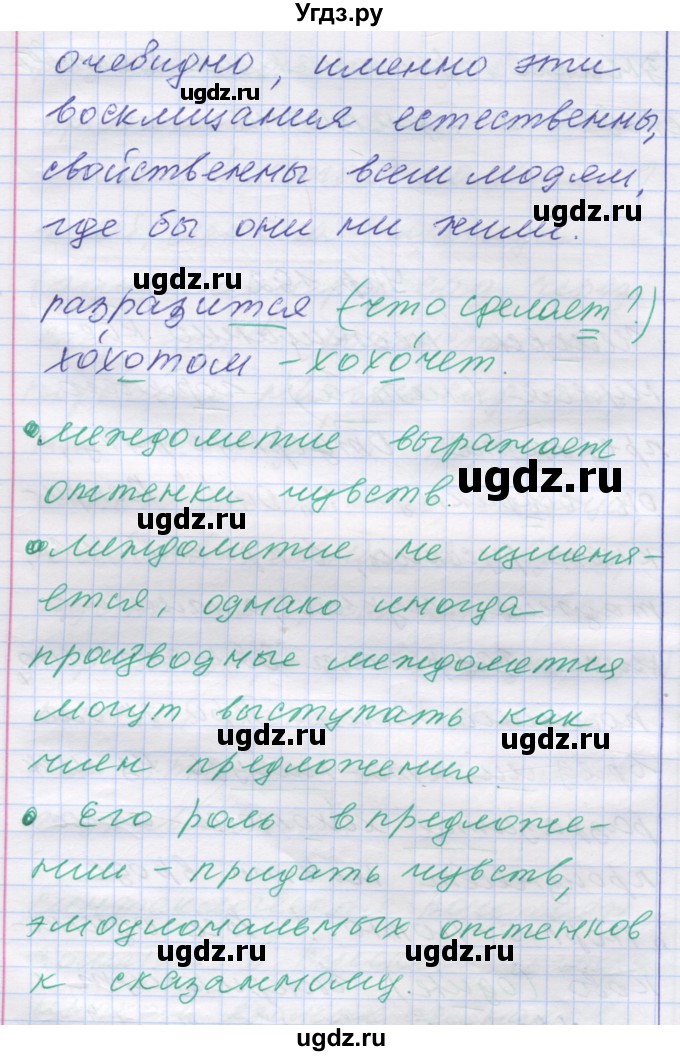 Угдз.ру
очевидно, именно эти
ugdz.ru
восклицания естественны,
свойственны всем людям,
ugdz.ru
где бы они ни жили.
ugdz.ru
разразится (что сделает?)
хо́хотом – хохо́чет.
• междометие выражает
ugdz.ru
оттенки чувств.
ugdz.ru
• междометие не изменя-
ется, однако иногда
производные междометия
могут выступать как
ugdz.ru ugdz.ru
член предложения
• Его роль в предложе-
нии – придать чувств,
эмоциональных оттенков
ugdz.ru ugdz.ru
к сказанному.
ugdz.ru